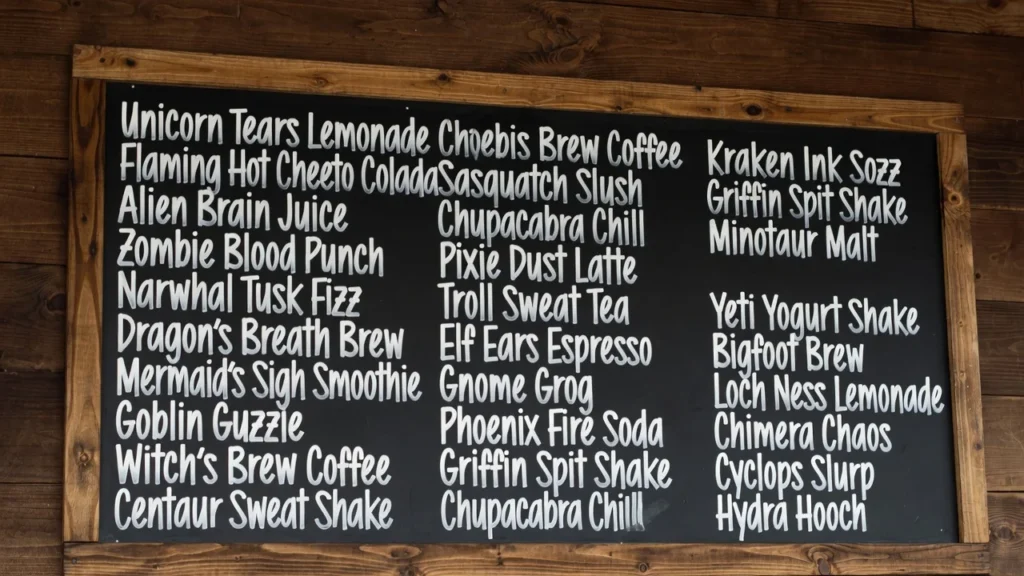 Unicorn Tears Lemonade
Flaming Hot Cheeto Colada
Alien Brain Juice
Zombie Blood Punch
Narwhal Tusk Fizz
Dragon's Breath Brew
Mermaid's Sigh Smoothie
Goblin Guzzle
Witch's Brew Coffee
Centaur Sweat Shake
Choebis Brew Coffee
Sasquatch Slush
Chupacabra Chill
Pixie Dust Latte
Troll Sweat Tea
Elf Ears Espresso
Gnome Grog
Phoenix Fire Soda
Griffin Spit Shake
Chupacabra Chilll
Kraken Ink Sozz
Griffin Spit Shake
Minotaur Malt
Yeti Yogurt Shake
Bigfoot Brew
Loch Ness Lemonade
Chimera Chaos
Cyclops Slurp
Hydra Hooch